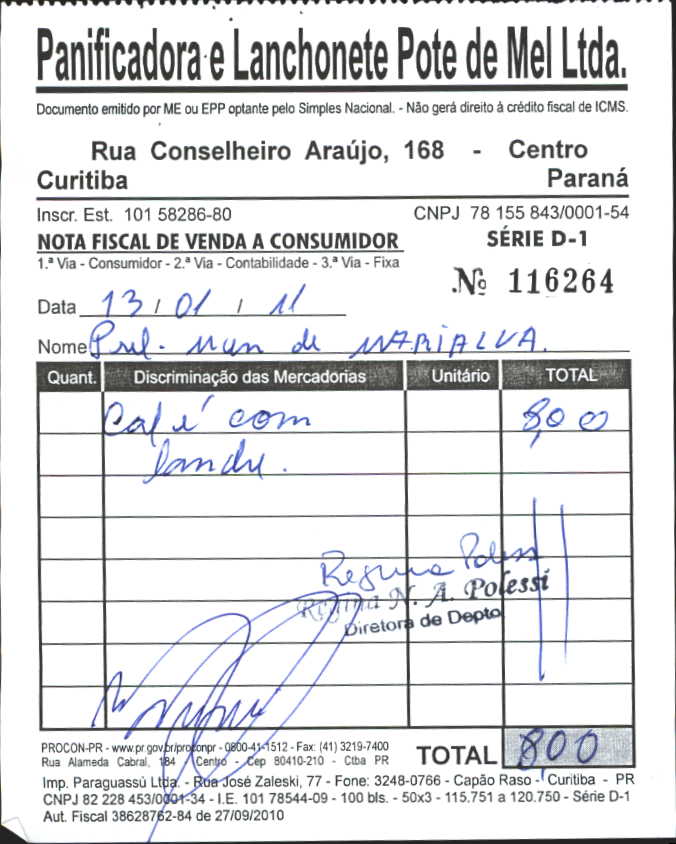 Panificadora e Lanchonete Pote de Mel Ltda.
Documento emitido por ME ou EPP optante pelo Simples Nacional. - Não gerá direito à crédito fiscal de ICMS.
Rua Conselheiro Araújo, 168 - Centro
Curitiba Paraná
Inscr. Est. 101 58286-80 CNPJ 78 155 843/0001-54
NOTA FISCAL DE VENDA A CONSUMIDOR SÉRIE D-1
1.ª Via - Consumidor - 2.ª Via - Contabilidade - 3.ª Via - Fixa
Nº 116264
Data 13 / 01 / 11
Nome Pref. Mun de MARIALVA.
Quant. Discriminação das Mercadorias Unitário TOTAL
Café com 8,00
lanche.
Regina Polessi
Regina N. A. Polessi
Diretora de Depto
PROCON-PR - www.pr.gov.br/proconpr - 0800-41-1512 - Fax: (41) 3219-7400
Rua Alameda Cabral, 184 / Centro - Cep 80410-210 - Ctba PR
TOTAL 800
Imp. Paraguassú Ltda. - Rua José Zaleski, 77 - Fone: 3248-0766 - Capão Raso - Curitiba - PR
CNPJ 82 228 453/0001-34 - I.E. 101 78544-09 - 100 bls. - 50x3 - 115.751 a 120.750 - Série D-1
Aut. Fiscal 38628762-84 de 27/09/2010